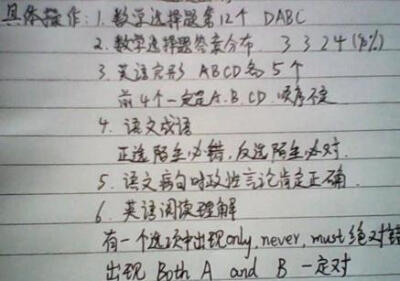 具体操作：1. 数学选择题第12个 DABC
2. 数学选择题答案分布 3 3 2 4 (90%)
3. 英语完形 ABCD各5个
前4个一定是A.B.C.D.顺序不定
4. 语文成语
正选陌生必错，反选陌生必对.
5. 语文病句时政性言论肯定正确.
6. 英语阅读理解
有一个选项中出现only, never, must 绝对错
出现 Both A and B 一定对